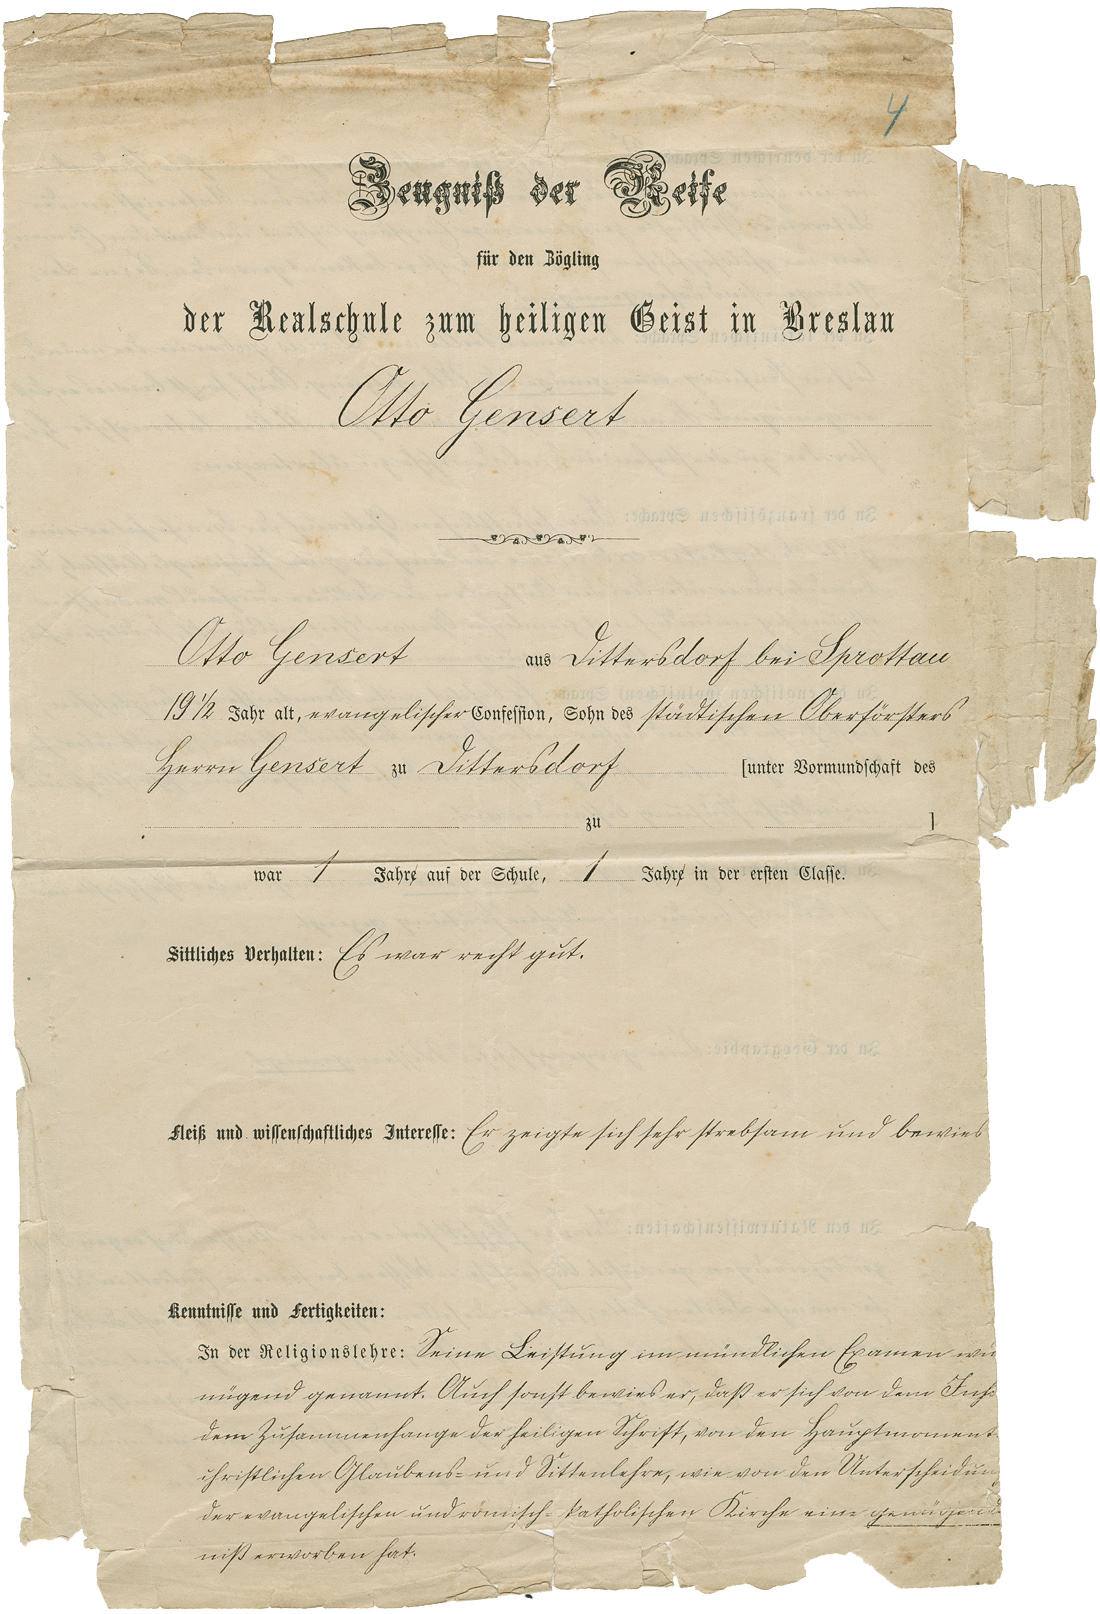 4
Zeugniß der Reife
für den Zögling
der Realschule zum heiligen Geist in Breslau
Otto Gensert
Otto Gensert aus Dittersdorf bei Sprottau
19 1/2 Jahr alt, evangelischer Confession, Sohn des städtischen Oberförsters
Herrn Gensert zu Dittersdorf [unter Vormundschaft des
zu ]
war 1 Jahr auf der Schule, 1 Jahr in der ersten Classe.
Sittliches Verhalten: Es war recht gut.
Fleiß und wissenschaftliches Interesse: Er zeigte sich sehr strebsam und bewies
Kenntnisse und Fertigkeiten:
In der Religionslehre: Seine Leistung im mündlichen Examen
nügend genannt. Auch sonst bewies er, daß er sich von dem
dem Zusammenhange der heiligen Schrift, von den Hauptmoment
christlichen Glaubens- und Sittenlehre, wie von den Unterscheidun
der evangelischen und römisch-katholischen Kirche eine genügend
niß erworben hat.